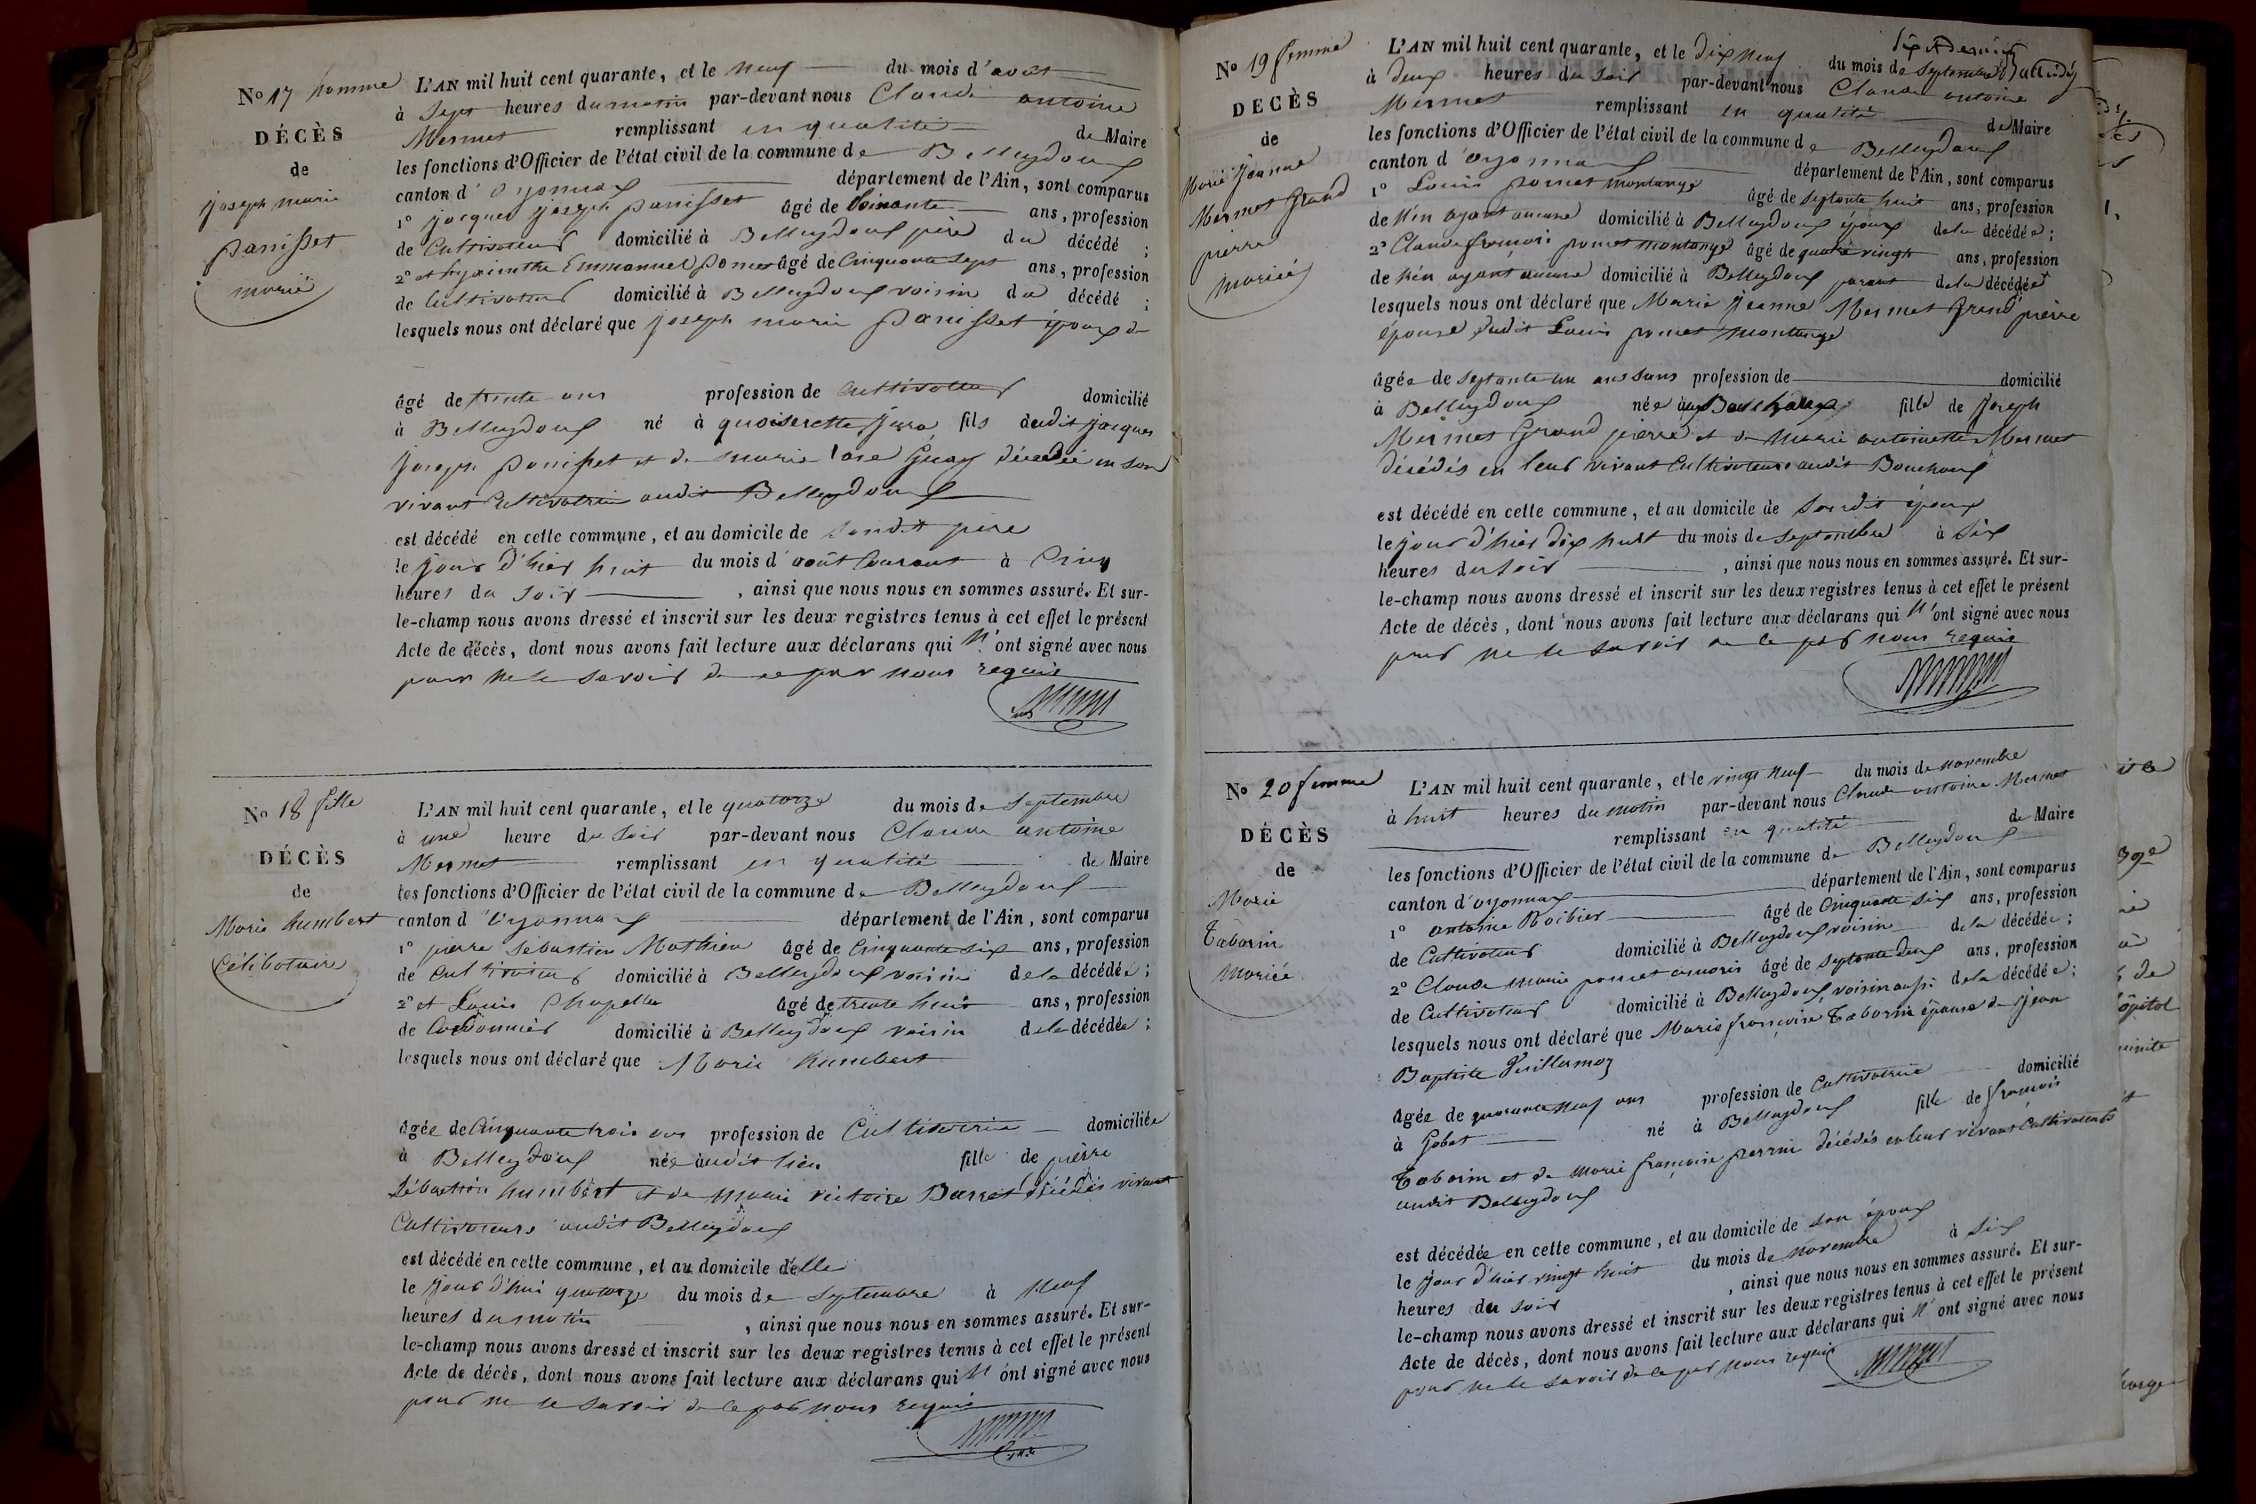 No 17 homme
DÉCÈS
de
joseph marie
panisset
marié
L'AN mil huit cent quarante, et le neuf du mois d'août
à sept heures du matin par-devant nous Claude antoine
Mermet remplissant en qualité de Maire
les fonctions d'Officier de l'état civil de la commune de Belleydoux
canton d'oyonnax département de l'Ain, sont comparus
1º jacques joseph panisset âgé de soixante ans, profession
de Cultivateur domicilié à Belleydoux père du décédé ;
2º et hyacinthe Emmanuel poncet âgé de Cinquante sept ans, profession
de Cultivateur domicilié à Belleydoux voisin du décédé ;
lesquels nous ont déclaré que joseph marie panisset époux de
âgé de trente ans profession de Cultivateur domicilié
à Belleydoux né à quoiserette jura fils dudit jacques
joseph panisset et de marie rose Guay décédée en son
vivant Cultivatrice audit Belleydoux
est décédé en cette commune, et au domicile de sondit père
le jour d'hier huit du mois d'août courant à Cinq
heures du soir , ainsi que nous nous en sommes assuré. Et sur-
le-champ nous avons dressé et inscrit sur les deux registres tenus à cet effet le présent
Acte de décès, dont nous avons fait lecture aux déclarans qui n'ont signé avec nous
pour ne le savoir de ce par nous requis
No 18 fille
DÉCÈS
de
Marie humbert
Célibataire
L'AN mil huit cent quarante, et le quatorze du mois de septembre
à une heure du soir par-devant nous Claude antoine
Mermet remplissant en qualité de Maire
les fonctions d'Officier de l'état civil de la commune de Belleydoux
canton d'oyonnax département de l'Ain, sont comparus
1º pierre sebastien Mathieu âgé de Cinquante six ans, profession
de Cultivateur domicilié à Belleydoux voisin de la décédée ;
2º et Louis Chapelle âgé de trente huit ans, profession
de Cordonnier domicilié à Belleydoux voisin de la décédée ;
lesquels nous ont déclaré que Marie humbert
âgée de Cinquante trois ans profession de Cultivatrice domiciliée
à Belleydoux née audit lieu fille de pierre
sébastien humbert et de marie victoire Barret décédés vivant
Cultivateurs audit Belleydoux
est décédé en cette commune, et au domicile d'elle
le jour d'hui quatorze du mois de septembre à neuf
heures du matin , ainsi que nous nous en sommes assuré. Et sur-
le-champ nous avons dressé et inscrit sur les deux registres tenus à cet effet le présent
Acte de décès, dont nous avons fait lecture aux déclarans qui n'ont signé avec nous
pour ne le savoir de ce par nous requis
No 19 femme
DÉCÈS
de
Marie jeanne
Mermet Grand
pierre
mariée
L'AN mil huit cent quarante, et le dix neuf du mois de septembre
à deux heures du soir par-devant nous Claude antoine
Mermet remplissant en qualité de Maire
les fonctions d'Officier de l'état civil de la commune de Belleydoux
canton d'oyonnax département de l'Ain, sont comparus
1º Louis poncet montange âgé de septante huit ans, profession
de n'en ayant aucune domicilié à Belleydoux époux de la décédée ;
2º Claude françois poncet montange âgé de quatre vingt ans, profession
de n'en ayant aucune domicilié à Belleydoux parent de la décédée
lesquels nous ont déclaré que Marie jeanne Mermet Grand pierre
épouse dudit Louis poncet montange
âgée de septante un ans sans profession de domicilié
à Belleydoux née aux Bouchoux fille de joseph
Mermet Grand pierre et de marie antoinette Mermet
décédés en leur vivant Cultivateurs audit Bouchoux
est décédé en cette commune, et au domicile de sondit époux
le jour d'hier dix huit du mois de septembre à six
heures du soir , ainsi que nous nous en sommes assuré. Et sur-
le-champ nous avons dressé et inscrit sur les deux registres tenus à cet effet le présent
Acte de décès, dont nous avons fait lecture aux déclarans qui n'ont signé avec nous
pour ne le savoir de ce par nous requis
No 20 femme
DÉCÈS
de
Marie
Taborin
mariée
L'AN mil huit cent quarante, et le vingt neuf du mois de novembre
à huit heures du matin par-devant nous Claude antoine Mermet
remplissant en qualité de Maire
les fonctions d'Officier de l'état civil de la commune de Belleydoux
canton d'oyonnax département de l'Ain, sont comparus
1º antoine âgé de Cinquante six ans, profession
de Cultivateur domicilié à Belleydoux voisin de la décédée ;
2º Claude marie poncet âgé de septante deux ans, profession
de Cultivateur domicilié à Belleydoux, voisin aussi de la décédée ;
lesquels nous ont déclaré que Marie françoise Taborin épouse de jean
Baptiste Vuillermoz
âgée de quarante neuf ans profession de Cultivatrice domicilié
à Gobet né à Belleydoux fille de françois
Taborin et de marie françoise perrin décédés en leur vivant Cultivateurs
audit Belleydoux
est décédée en cette commune, et au domicile de son époux
le jour d'hier vingt huit du mois de novembre à six
heures du soir , ainsi que nous nous en sommes assuré. Et sur-
le-champ nous avons dressé et inscrit sur les deux registres tenus à cet effet le présent
Acte de décès, dont nous avons fait lecture aux déclarans qui n'ont signé avec nous
pour ne le savoir de ce par nous requis